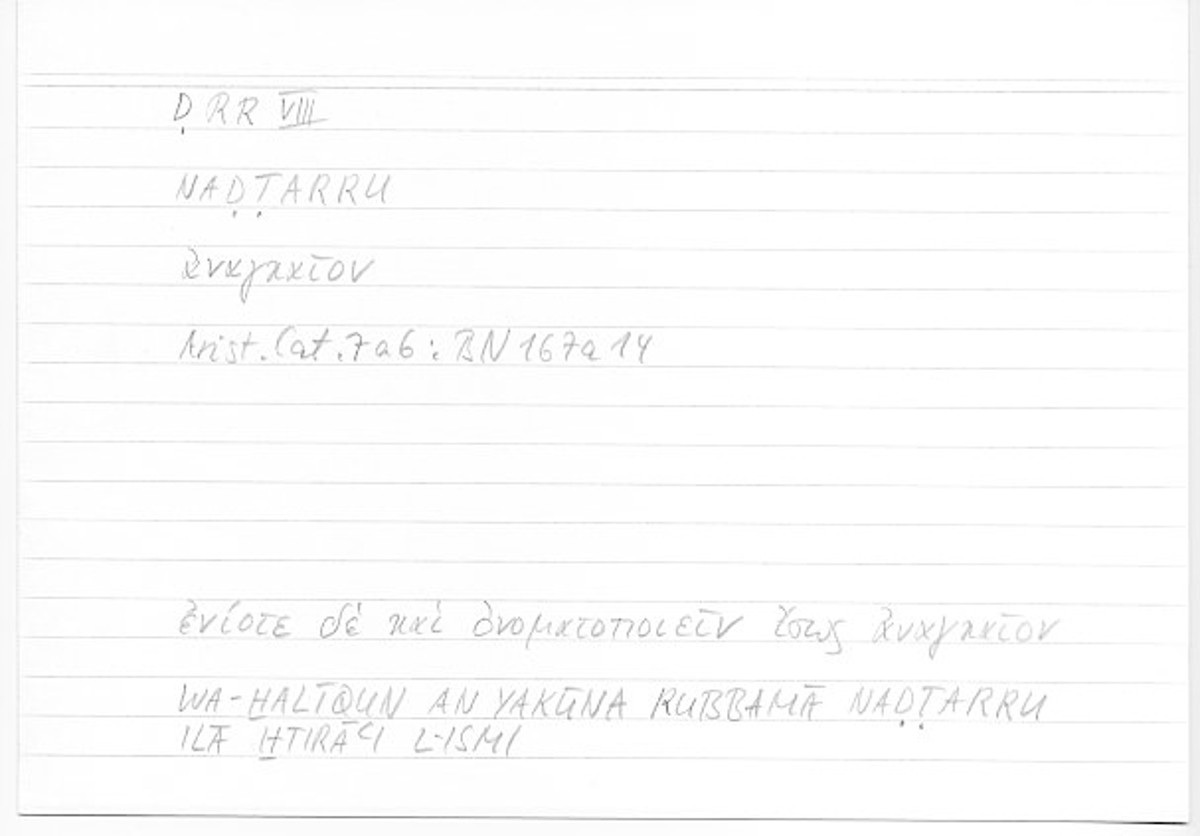 ḌRR VIII
NAḌṬARRU
ἀναγκαῖον
Arist. Cat. 7a6 : BN 167a14
ἐνίοτε δὲ καὶ ὀνοματοποιεῖν ἴσως ἀναγκαῖον
WA-H̱ALĪQUN AN YAKŪNA RUBBAMĀ NAḌṬARRU
ILĀ H̱TIRĀʿI L-ISMI